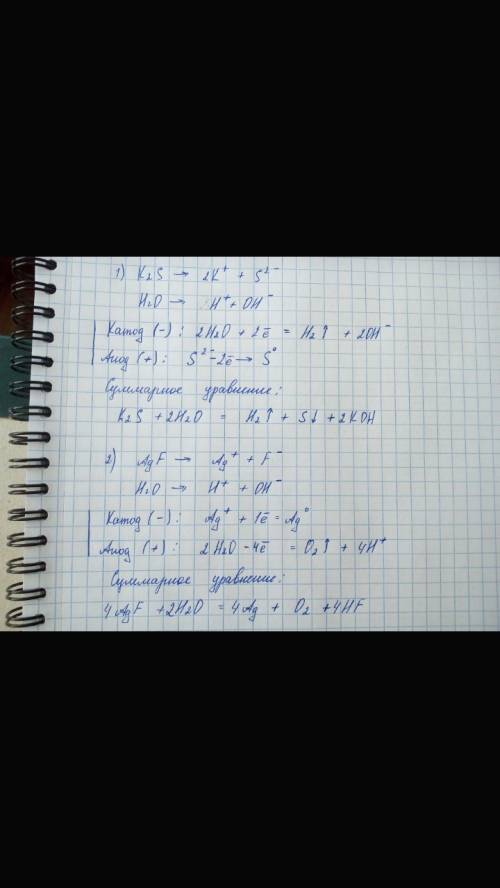 1) K₂S → 2K⁺ + S²⁻
H₂O → H⁺ + OH⁻
Катод (-) : 2H₂O + 2ē = H₂↑ + 2OH⁻
Анод (+) : S²⁻-2ē → S⁰
Суммарное уравнение:
K₂S + 2H₂O = H₂↑ + S↓ + 2KOH
2) AgF → Ag⁺ + F⁻
H₂O → H⁺ + OH⁻
Катод (-) : Ag⁺ + 1ē = Ag⁰
Анод (+) : 2H₂O - 4ē = O₂↑ + 4H⁺
Суммарное уравнение:
4AgF + 2H₂O = 4Ag + O₂ + 4HF